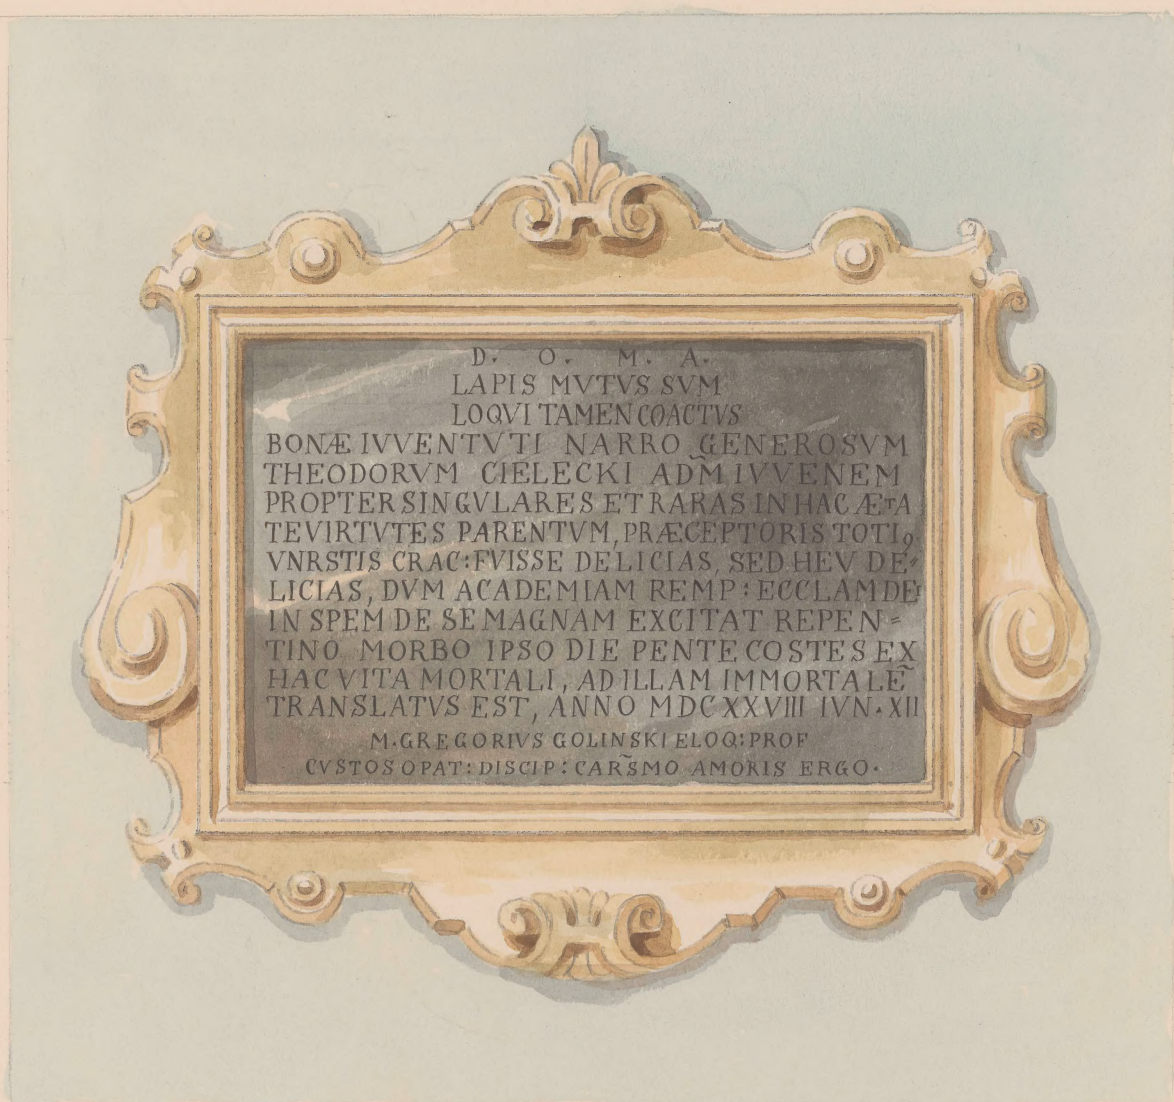 D. O. M. A.
LAPIS MVTVS SVM
LOQVI TAMEN COACTVS
BONÆ IVVENTVTI NARRO GENEROSVM
THEODORVM CIELECKI ADM̃ IVVENEM
PROPTER SINGVLARES ET RARAS IN HAC ÆTA
TE VIRTVTES PARENTVM, PRÆCEPTORIS TOTI9
VNRSTIS CRAC: FVISSE DELICIAS, SED HEV DE=
LICIAS, DVM ACADEMIAM REMP: ECCLAM DEI
IN SPEM DE SE MAGNAM EXCITAT REPEN=
TINO MORBO IPSO DIE PENTECOSTES EX
HAC VITA MORTALI, AD ILLAM IMMORTALẼ
TRANSLATVS EST, ANNO MDCXXVIII IVN. XII
M. GREGORIVS GOLINSKI ELOQ: PROF
CVSTOS OPAT: DISCIP: CARS̃MO AMORIS ERGO.